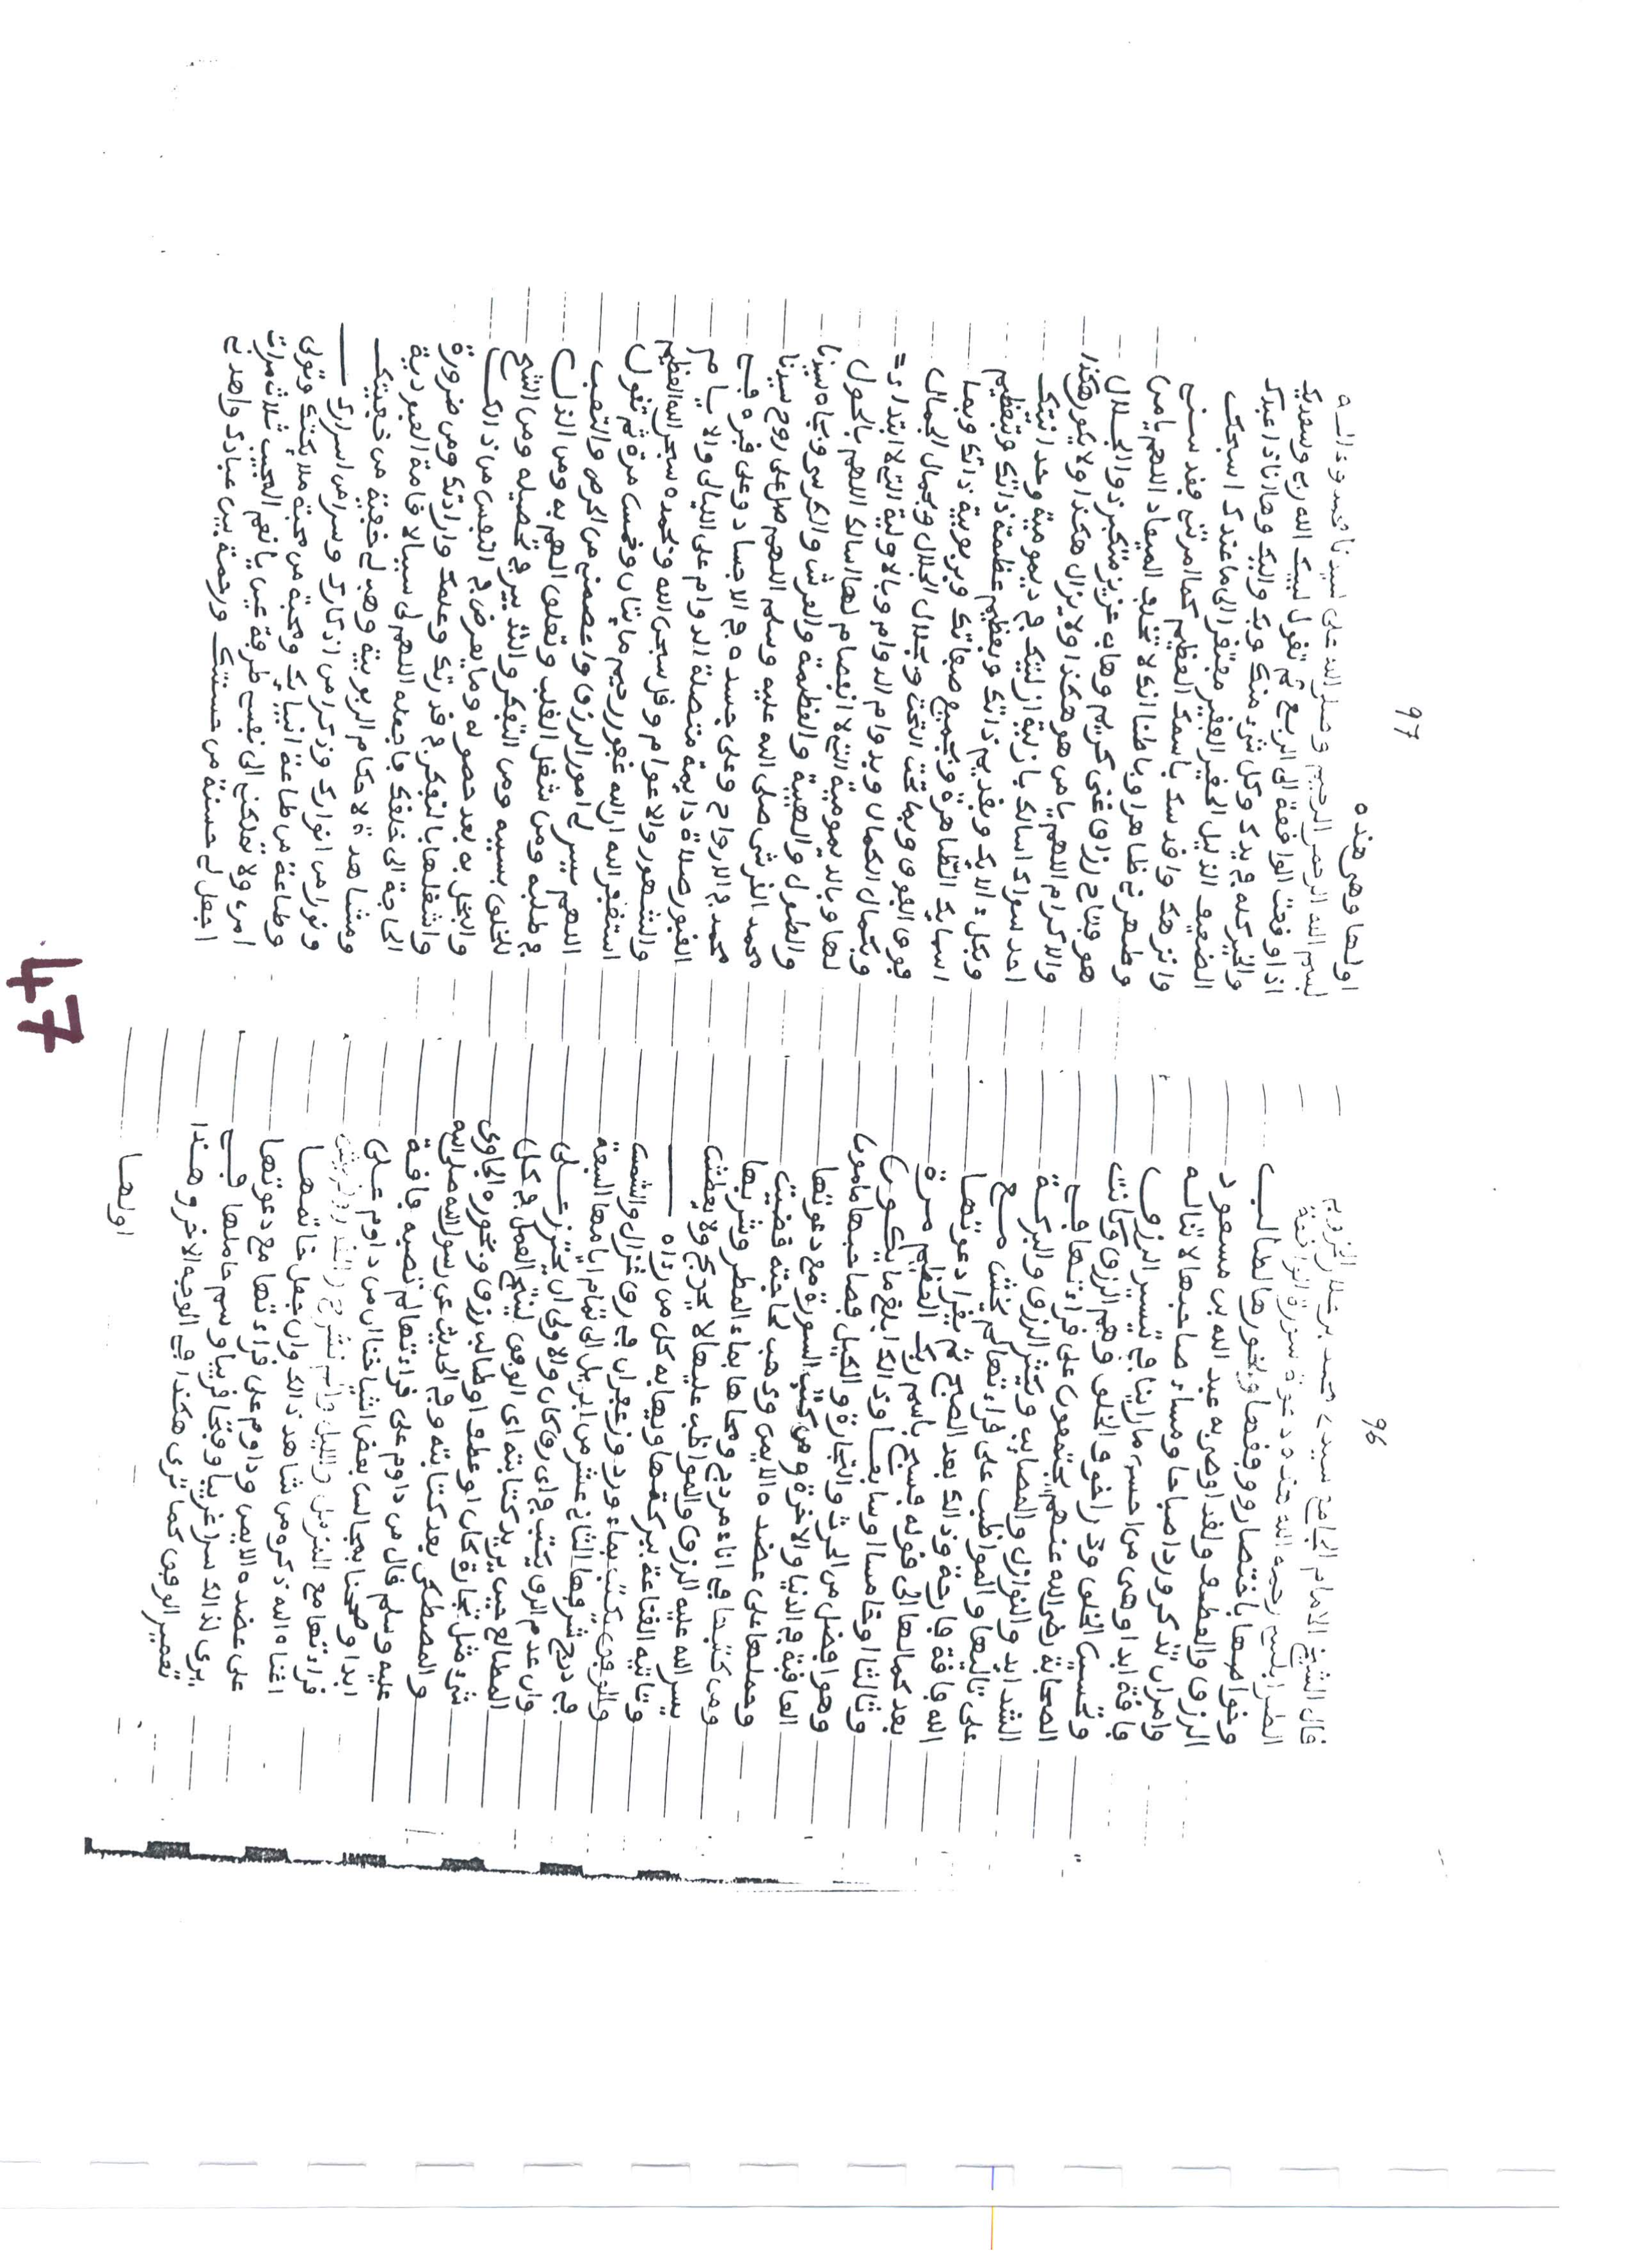 96
قال الشيخ الامام الجامع سيدي محمد بن
الطرابلسي رحمه الله هذه دعوة سورة الواقعة
وخواصها باختصار ووفقها وبخورها لطالب
الرزق والعطف ولقد اوصى به عبد الله بن مسعود
وامران تذكر وردا صباحا ومساء صاحبها لا تناله
فاقة ابدا وهى من احسن ما راينا في تيسير الرزق
وتحسين الخلق ودر اخوف الخلق وهم الرزق وكانت
الصحابة رضي الله عنهم يجتمعون على قراءتها في
الشدايد والنوازل والمصايب وتكثر الرزق والبركة
على تاليها والمواظب على قراءتها لم يخش مسع
الله فاقة فارحة وذالك بعد الصبح ثم يقرا دعوتها
بعد كمالها الى قوله فسبح باسم ربك العظيم مرة
وثالثا وخامسا وسابعا وذالك ابلغ ما يكون
وهو افضل من الحرث والتجارة والكيل فصاحبها مامون
العافية في الدنيا والاخرة ومن كتب السورة مع دعوتها
وحملها على عضده الايمن وذهب لحاجته قضيت
ومن كتبها في اناء مردج ومحاها بماء المطر وشربها
يسر الله عليه الرزق والمواظب عليها لا يحرج ولا يعطش
وتاتيه القناعة ببركتها ويهابه كل من رءاه
والوفق يكتب بماء ورد وزعفران في رق غزال والشمس
في درج شرفها الثاني عشر من ابريل الى تمام ايامها السبعة
وان عدم الرق يكتب في اي رق كان والاولى ان يحترز على
المطالع حين يريد كتابته اي الوفق لينتج العمل في كل
شيء مثل تجارة كان او عطف او طالب رزق وبخوره الجاوي
والمصطكى بعد كتابته وفي الحديث عن رسول الله صلى الله
عليه وسلم قال من داوم على قراءتها لم تصبه فاقة
ابدا وصحبنا بمجالس بعض اشياخنا ان من داوم على
قراءتها مع المزمل والليل والم نشرح
اغناه الله ذكره من شاهد ذالك وان جعل خاتمها
على عضده الايمن وداوم على قراءتها مع دعوتها
يرى لذالك سرا غريبا وفتحا قريبا وسم حاملها في
تعمير الوفق كما ترى هكذا في الوجه الاخر وهذا
اولها
97
اولها وهى هذه
بسم الله الرحمن الرحيم وصلى الله على سيدنا محمد وءاله
اذا وقعت الواقعة الى الربع ثم تقول لبيك الله ربي وسعديك
والخير كله في يديك وكل شيء منك وبك واليك وها انا ذا عبدك
الضعيف الذليل الحقير الفقير مفتقر الى ما عندك اسبحك
وانزهك واقدسك باسمك العظيم كما امرتني فقدسني
وطهرني ظاهرا وباطنا انك لا تخلف الميعاد اللهم يا من
هو فتاح رزاق غني كريم وهاب عزيز متكبر ذو الجلال
والاكرام اللهم يا من هو هكذا ولا يزال هكذا ولا يكون هكذا
احد سواك اسالك بازلية ازليتك في ديمومية وحدانيتك
وبكل ءالايك وبقديم ذاتك وبعظيم عظمة ذاتك وبتعظيم
اسمايك الطاهرة وبجميع صفاتك وبربوبية ذاتك وبما
فوق الفوق وبما تحت التحت وبجلال الجلال وبجمال الجمال
وبكمال الكمال وبدوام الدوام وبالاولية التي لا ابتداء
لها وبالديمومية التي لا انفصام لها اسالك اللهم بالحول
والطول والهيبة والعظمة والعرش والكرسي وبجاه سيدنا
محمد القرشي صلى الله عليه وسلم اللهم صل على روح سيدنا
محمد في الارواح وعلى جسده في الاجساد وعلى قبره في
القبور صلاة دايمة متصلة الدوام على الليالي والايام
والشهور والاعوام وقل سبحن الله وبحمده سبحن الله العظيم
استغفر الله ان الله غفور رحيم مايتان وخمس مرة ثم تقول
اللهم يسر لي امور الرزق واعصمني من الحرص والتعب
في طلبه ومن شغل القلب وتعلق الهم به ومن الذل
للخلق بسببه ومن التفكر والتدبير في تحصيله ومن الشح
والبخل به بعد حصوله وما يعرض في النفس من ذالك
واشغلها بالتفكر في قدرتك وعلمك وارادتك ومن ضرورة
الحاجة الى خلقك فاجعله اللهم لي سببا لاقامة العبودية
ومشاهدة لاحكام الربوبية وهب لي خفية من خفيتك
ونورا من انوارك وذكرا من اذكارك وسرا من اسرارك
وطاعة من طاعة انبيايك ومحبة من محبة ملايكتك وتولى
امري ولا تملكني الى نفسي طرفة عين يا نعم المجيب ثلاث مرات
اجعل لي حسنة من حسنتك ورحمة بين عبادك واهد بي
47